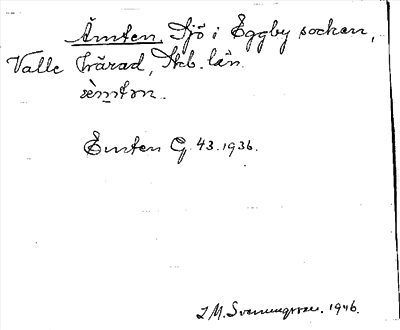 Ämten, Sjö i Eggby socken,
Valle härad, Skb. län.
Emten G. 43. 1936.
L M. Svenungsson. 1946.